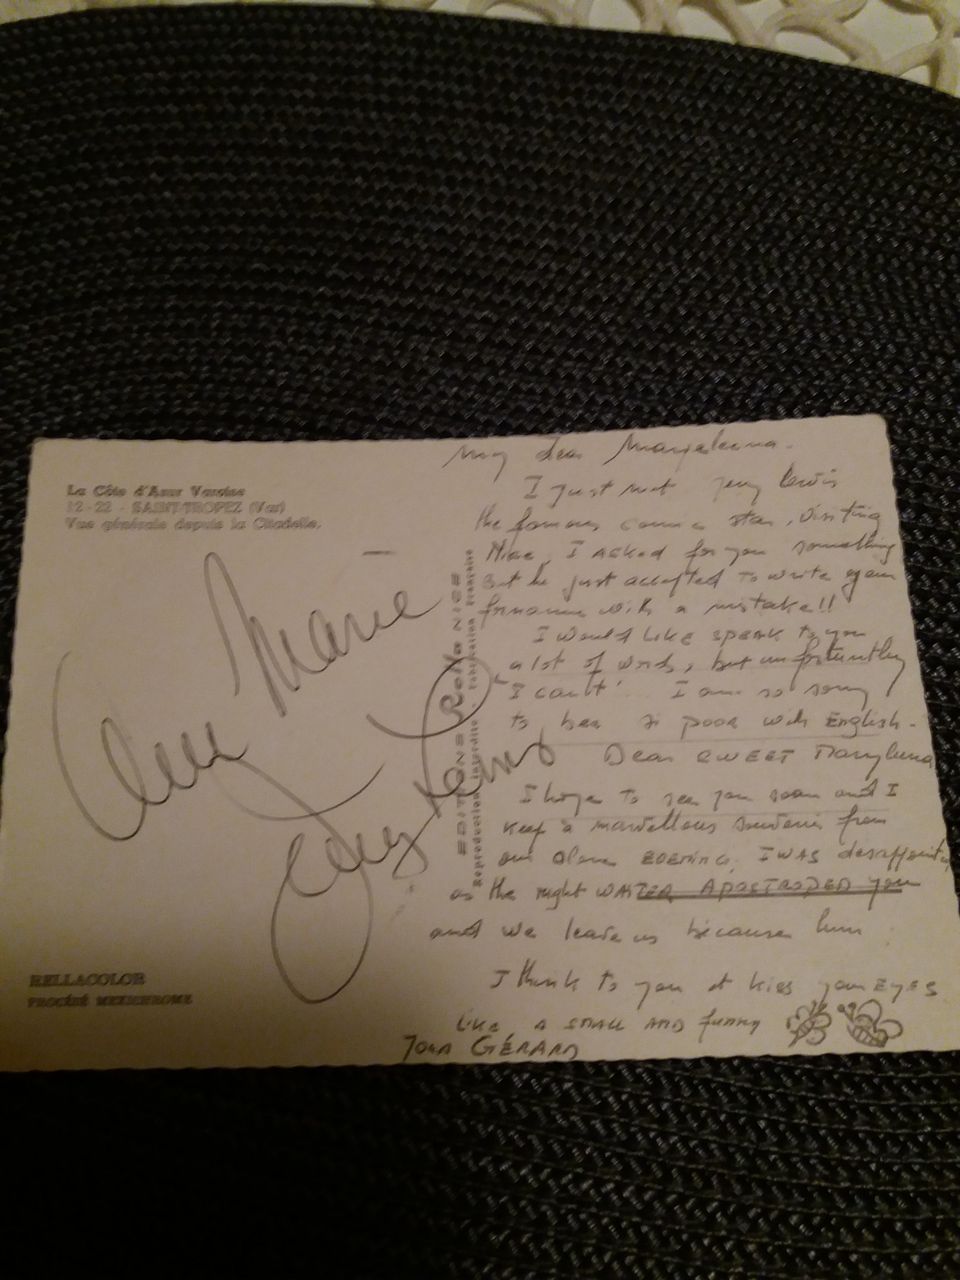 La Côte d'Azur Varoise
12-22 - SAINT-TROPEZ (Var)
Vue générale depuis la Citadelle.
Marie
Jerry Lewis
RELLACOLOR
PROCÉDÉ MEXICHROME
EDITIONS RELLA NICE
Reproduction Interdite - Fabrication Française
My dear
I just met Jerry Lewis
the famous comic star, visiting
Nice, I ASKED for you something
But he just accepted to write your
with a mistake!!
I would like speak to you
a lot of words, but unfortunately
I can't ... I am so sorry
to bee si poor with English -
Dear SWEET
I hope to see you soon and I
keep a marvellous souvenir from
our EVENING. I WAS
as the night WAITER APOSTROPED you
and we leave us because him
I thank to you et kiss your EYES
like A SMALL AND funny
GÉRARD